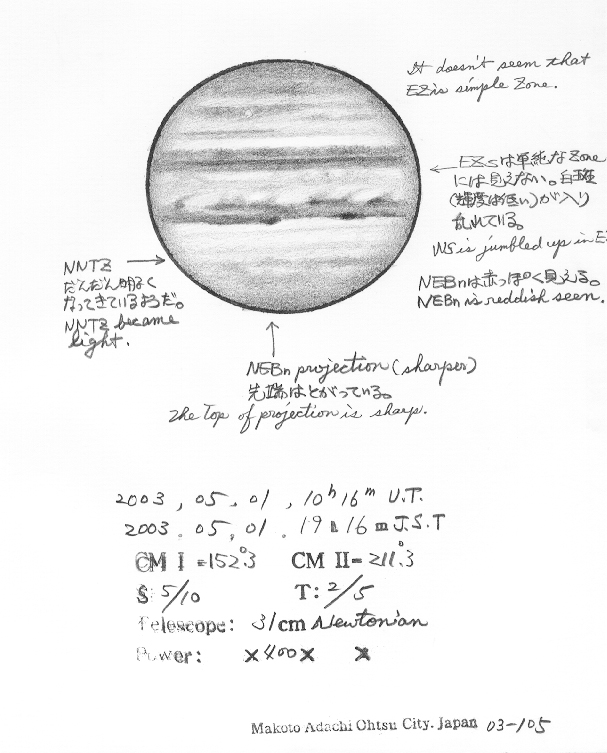 It doesn't seem that
EZ is simple Zone.
EZsは単純なZone
には見えない。白斑
(輝度は低い)が入り
乱れている。
WS is jumbled up in E
NEBnは赤っぽく見える。
NEBn is reddish seen.
NNTZ
だんだん明るく
なってきているようだ。
NNTZ became
light.
NEBn projection (sharper)
先端はとがっている。
The Top of projection is sharp.
2003, 05. 01, 10h 16m U.T.
2003. 05, 01. 19h 16m J.S.T
CM I =152°.3 CM II=211°.3
S: 5/10 T: 2/5
Telescope: 31cm Newtonian
Power: ×400× ×
Makoto Adachi Ohtsu City. Japan 03-105